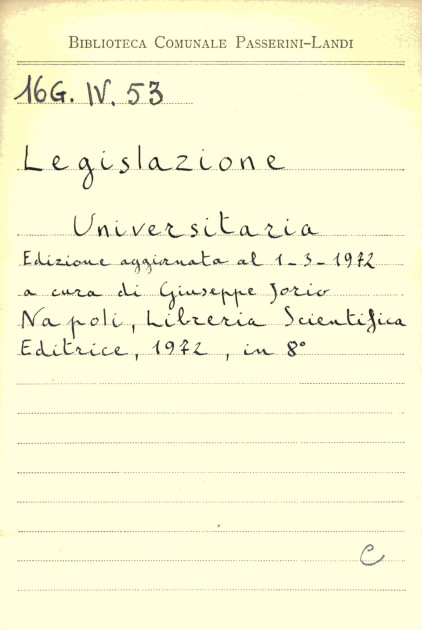 Biblioteca Comunale Passerini-Landi
16G. IV. 53
Legislazione
Universitaria
Edizione aggiornata al 1-3-1972
a cura di Giuseppe Jorio
Napoli, Libreria Scientifica
Editrice, 1972, in 8°
C